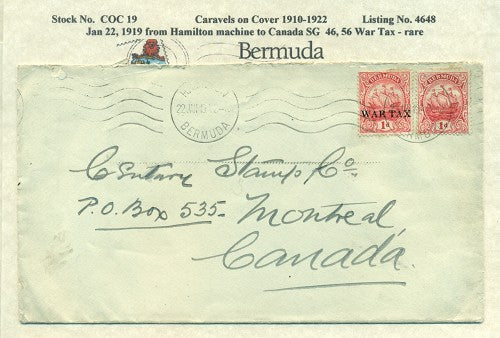 Stock No. COC 19 Caravels on Cover 1910-1922 Listing No. 4648
Jan 22, 1919 from Hamilton machine to Canada SG 46, 56 War Tax - rare
Bermuda
BERMUDA
BERMUDA
BERMUDA
WAR TAX
1d
1d
Century Stamp Co.
P.O. Box 535-
Montreal
Canada.